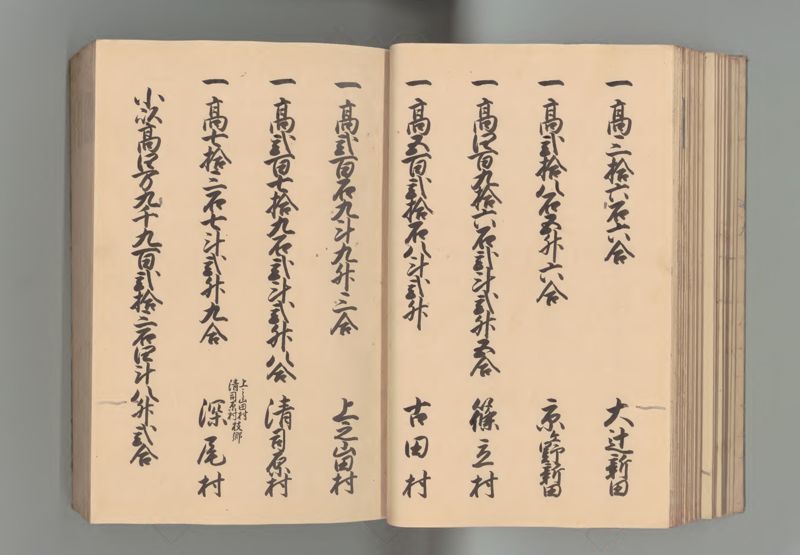 一高三拾六石六合　大辻新田
一高弐拾八石五升六合　京ケ野新田
一高四百九拾六石弐斗弐升五合　篠立村
一高五百弐拾石八斗弐升　古田村
一高弐百石九斗九升三合　上之山田村
一高弐百七拾九石弐斗弐升八合　清司原村
上之山田村
清司原村枝郷
一高七拾三石七斗弐升九合　深尾村
小以高四万九千九百弐拾三石四斗八升弐合